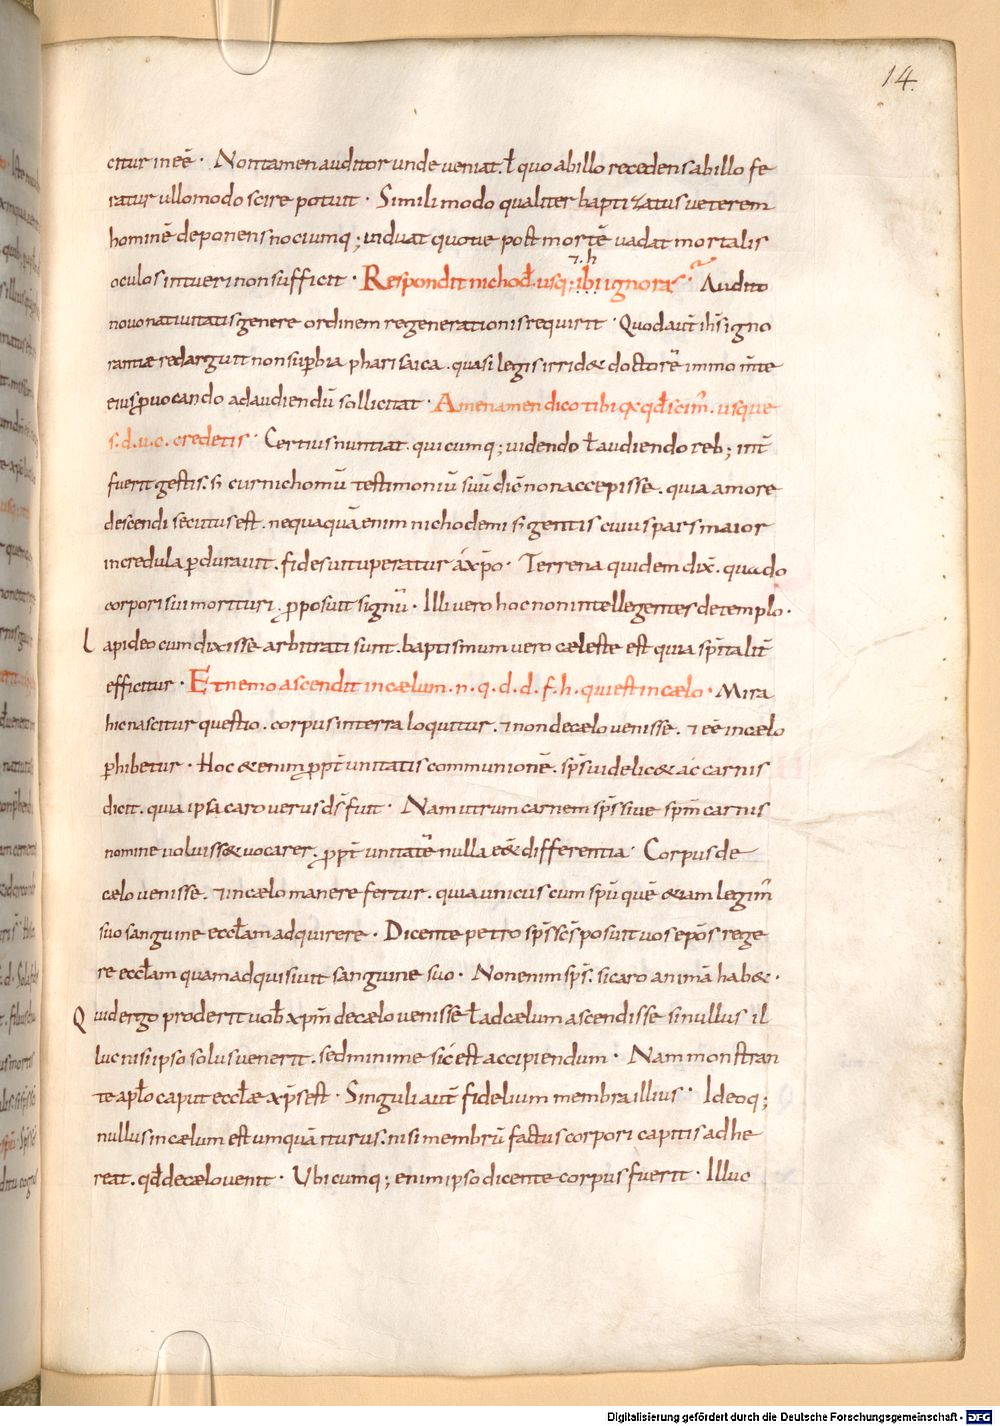 14.
citur in eē · Non tamen auditor unde veniat. ł quo abillo recedens abillo fe
ratur ullomodo scire potuit · Simili modo qualiter baptizatus veterem
hominē deponens nociumq; viduat quove post mortē vadat mortalis
oculos intueri non sufficit · Respondit nichod. usq; ibi ignoras · Audito
7. h
novo nativitatis genere ordinem regenerationis requirit · Quod aut ihs igno
rantiæ redarguit non supbia pharisaica. quasi legis irrid& doctorē immo mte
eius pvocando ad audiendū sollicitat · Amen amen dico tibi q̣ qd scim̄. usque
s. d. u. c. credetis · Certius nuntiat. quicumq; videndo ł audiendo reb; int̄
fuerit gestis. s̄ cur nichomū testimoniū suū dic̄ non accepisse. quia amore
descendi secutus est. nequaquā enim nichodemi s̄ gentis cuius pars maior
incredula pduravit. fides vituperatur á xp̄o · Terrena quidem dix̄. quando
corpori sui morituri. pposuit signū · Illi vero hoc non intellegentes de templo.
Lapideo cum dixisse arbitrati sunt. baptismum vero cæleste est quia spītalit̄
efficitur · Et nemo ascendit in cælum. n. q. d. d. f. h. qui est in cælo · Mira
hic nascitur questio. corpus in terra loquitur. & non de cælo venisse. & eē in cælo
phibetur · Hoc & enim ppt̄ unitatis communionē. sps̄ videlic& ac carnis
dicit. quia ipsa caro verus ds̄ fuit · Nam utrum carnem sps̄ sive spm̄ carnis
nomine voluiss& vocarer. ppt̄ unitatē nulla ee& differentia · Corpus de
cælo venisse. & in cælo manere fertur. quia unicus cum spū quē &iam legim̄
suo sanguine ecclam adquirere · Dicente petro sps̄ scs̄ posuit vos epōs rege
re ecclam quam adquisivit sanguine suo · Non enim sps̄. si caro animā hab& ·
Quid ergo proderit vob xpm̄ de cælo venisse ł ad cælum ascendisse si nullus il
luc nisi ipso solus venerit. sed minime sic est accipiendum · Nam monstran
te apło caput ecclæ xps̄ est · Singuli aut̄ fidelium membra illius · Ideoq;
nullus in cælum est umquā iturus. nisi membrū factus corpori capitis adhe
reat. qd de cælo venit · Ubicumq; enim ipso dicente corpus fuerit · Illuc
Digitalisierung gefördert durch die Deutsche Forschungsgemeinschaft - DFG